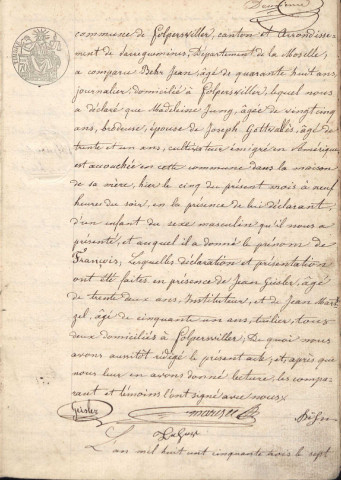 Deuxième
commune de Folpersviller, canton et Arrondisse-
ment de Sarreguemines, Département de la Moselle,
a comparu Behr Jean, âgé de quarante huit ans,
journalier, domicilié à Folpersviller, lequel nous
a déclaré que Madeleine Jung, âgée de vingt cinq
ans, brodeuse, épouse de Joseph Gottvallès, âgé de
trente et un ans, cultivateur émigré en Amérique,
est accouchée en cette commune dans la maison
de sa mère, hier le cinq du présent mois à neuf
heures du soir, en la présence de lui déclarant,
d'un enfant du sexe masculin qu'il nous a
présenté, et auquel il a donné le prénom de
François, Lesquelles déclaration et présentation
ont été faites en présence de Jean Geisler, âgé
de trente deux ans, Instituteur, et de Jean Mart
zel, âgé de cinquante un ans, tuilier, tous
deux domiciliés à Folpersviller. De quoi nous
avons aussitôt rédigé le présent acte et, après que
nous leur en avons donné lecture, les compa
rant et témoins l'ont signé avec nous
Geisler
L'an mil huit cent cinquante trois le sept